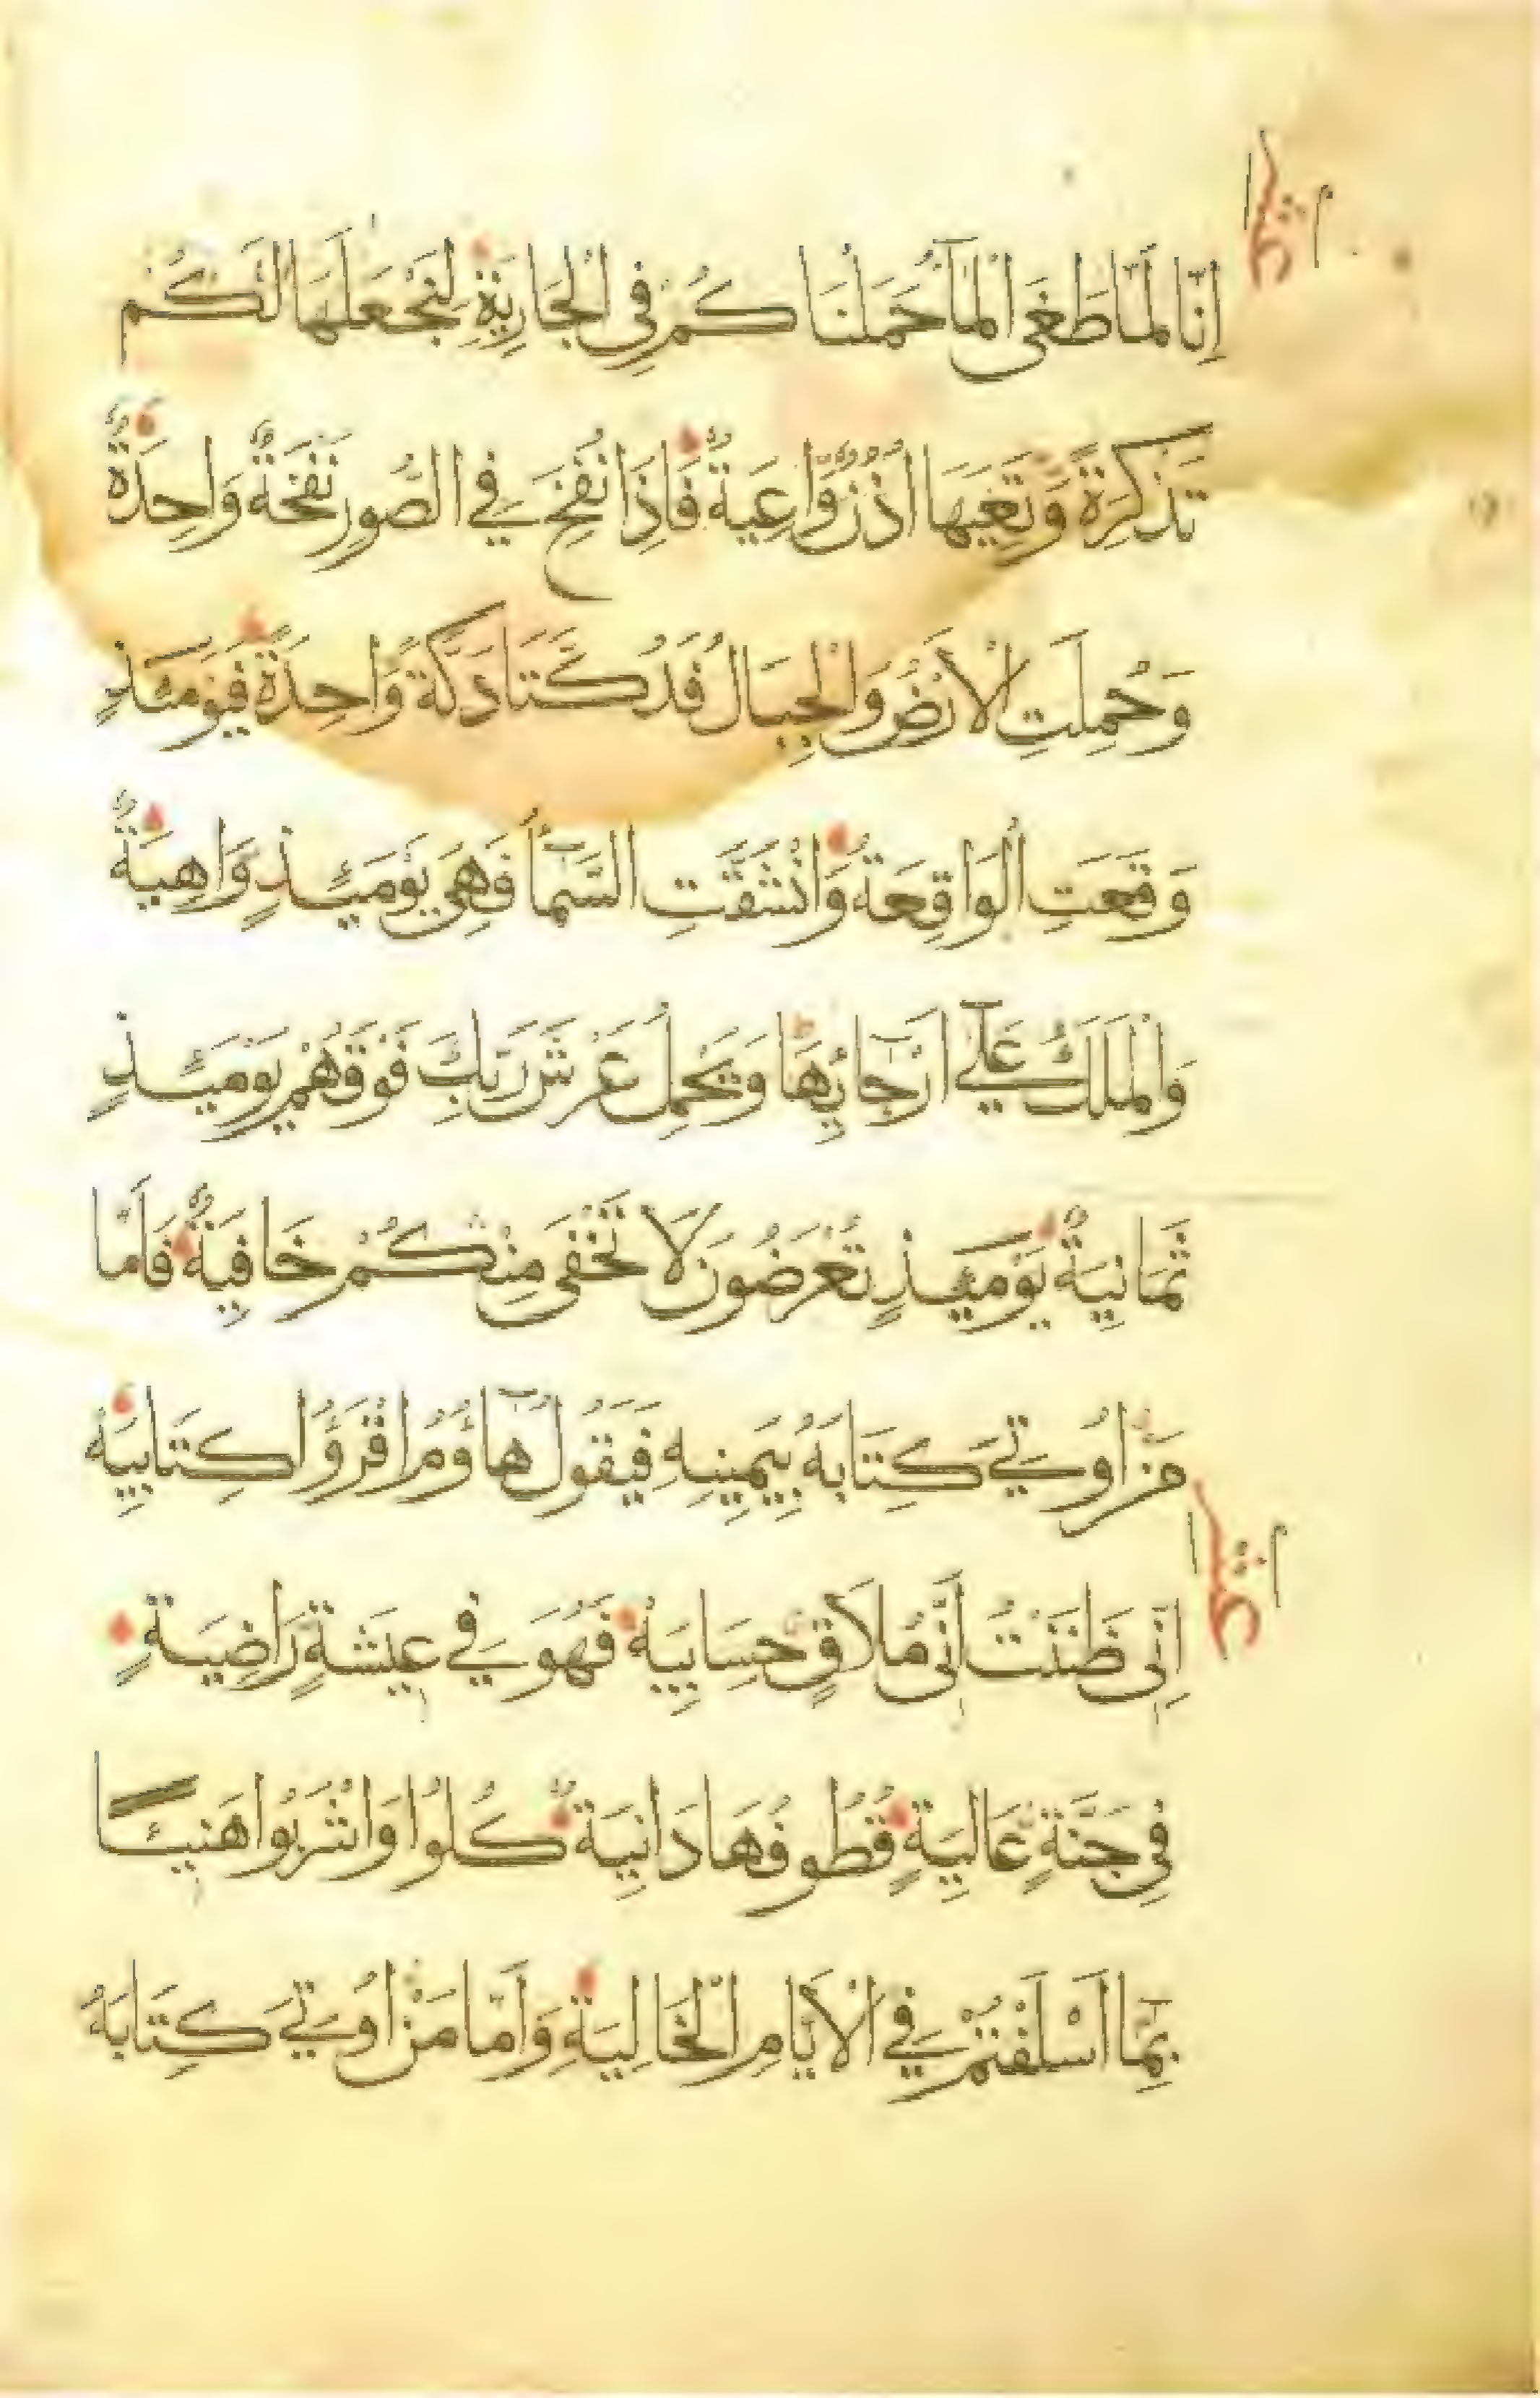 اِنَّا لَمَّا طَغَى الْمَآءُ حَمَلْنَا كُمْ فِي الْجَارِيَةِ لِنَجْعَلَهَا لَكُمْ
تَذْكِرَةً وَّتَعِيَهَا اُذُنٌ وَّاعِيَةٌ فَاِذَا نُفِخَ فِي الصُّورِ نَفْخَةٌ وَاحِدَةٌ
وَحُمِلَتِ الْاَرْضُ وَالْجِبَالُ فَدُكَّتَا دَكَّةً وَاحِدَةً فَيَوْمَئِذٍ
وَقَعَتِ الْوَاقِعَةُ وَانْشَقَّتِ السَّمَآءُ فَهِيَ يَوْمَئِذٍ وَاهِيَةٌ
وَالْمَلَكُ عَلَى اَرْجَآئِهَا وَيَحْمِلُ عَرْشَ رَبِّكَ فَوْقَهُمْ يَوْمَئِذٍ
ثَمَانِيَةٌ يَوْمَئِذٍ تُعْرَضُونَ لَا تَخْفَى مِنْكُمْ خَافِيَةٌ فَاَمَّا
مَنْ اُوتِيَ كِتَابَهُ بِيَمِينِهِ فَيَقُولُ هَآؤُمُ اقْرَؤُا كِتَابِيَهْ
اِنِّي ظَنَنْتُ اَنِّي مُلَاقٍ حِسَابِيَهْ فَهُوَ فِي عِيشَةٍ رَاضِيَةٍ
فِي جَنَّةٍ عَالِيَةٍ قُطُوفُهَا دَانِيَةٌ كُلُوا وَاشْرَبُوا هَنِيئًا
بِمَا اَسْلَفْتُمْ فِي الْاَيَّامِ الْخَالِيَةِ وَاَمَّا مَنْ اُوتِيَ كِتَابَهُ